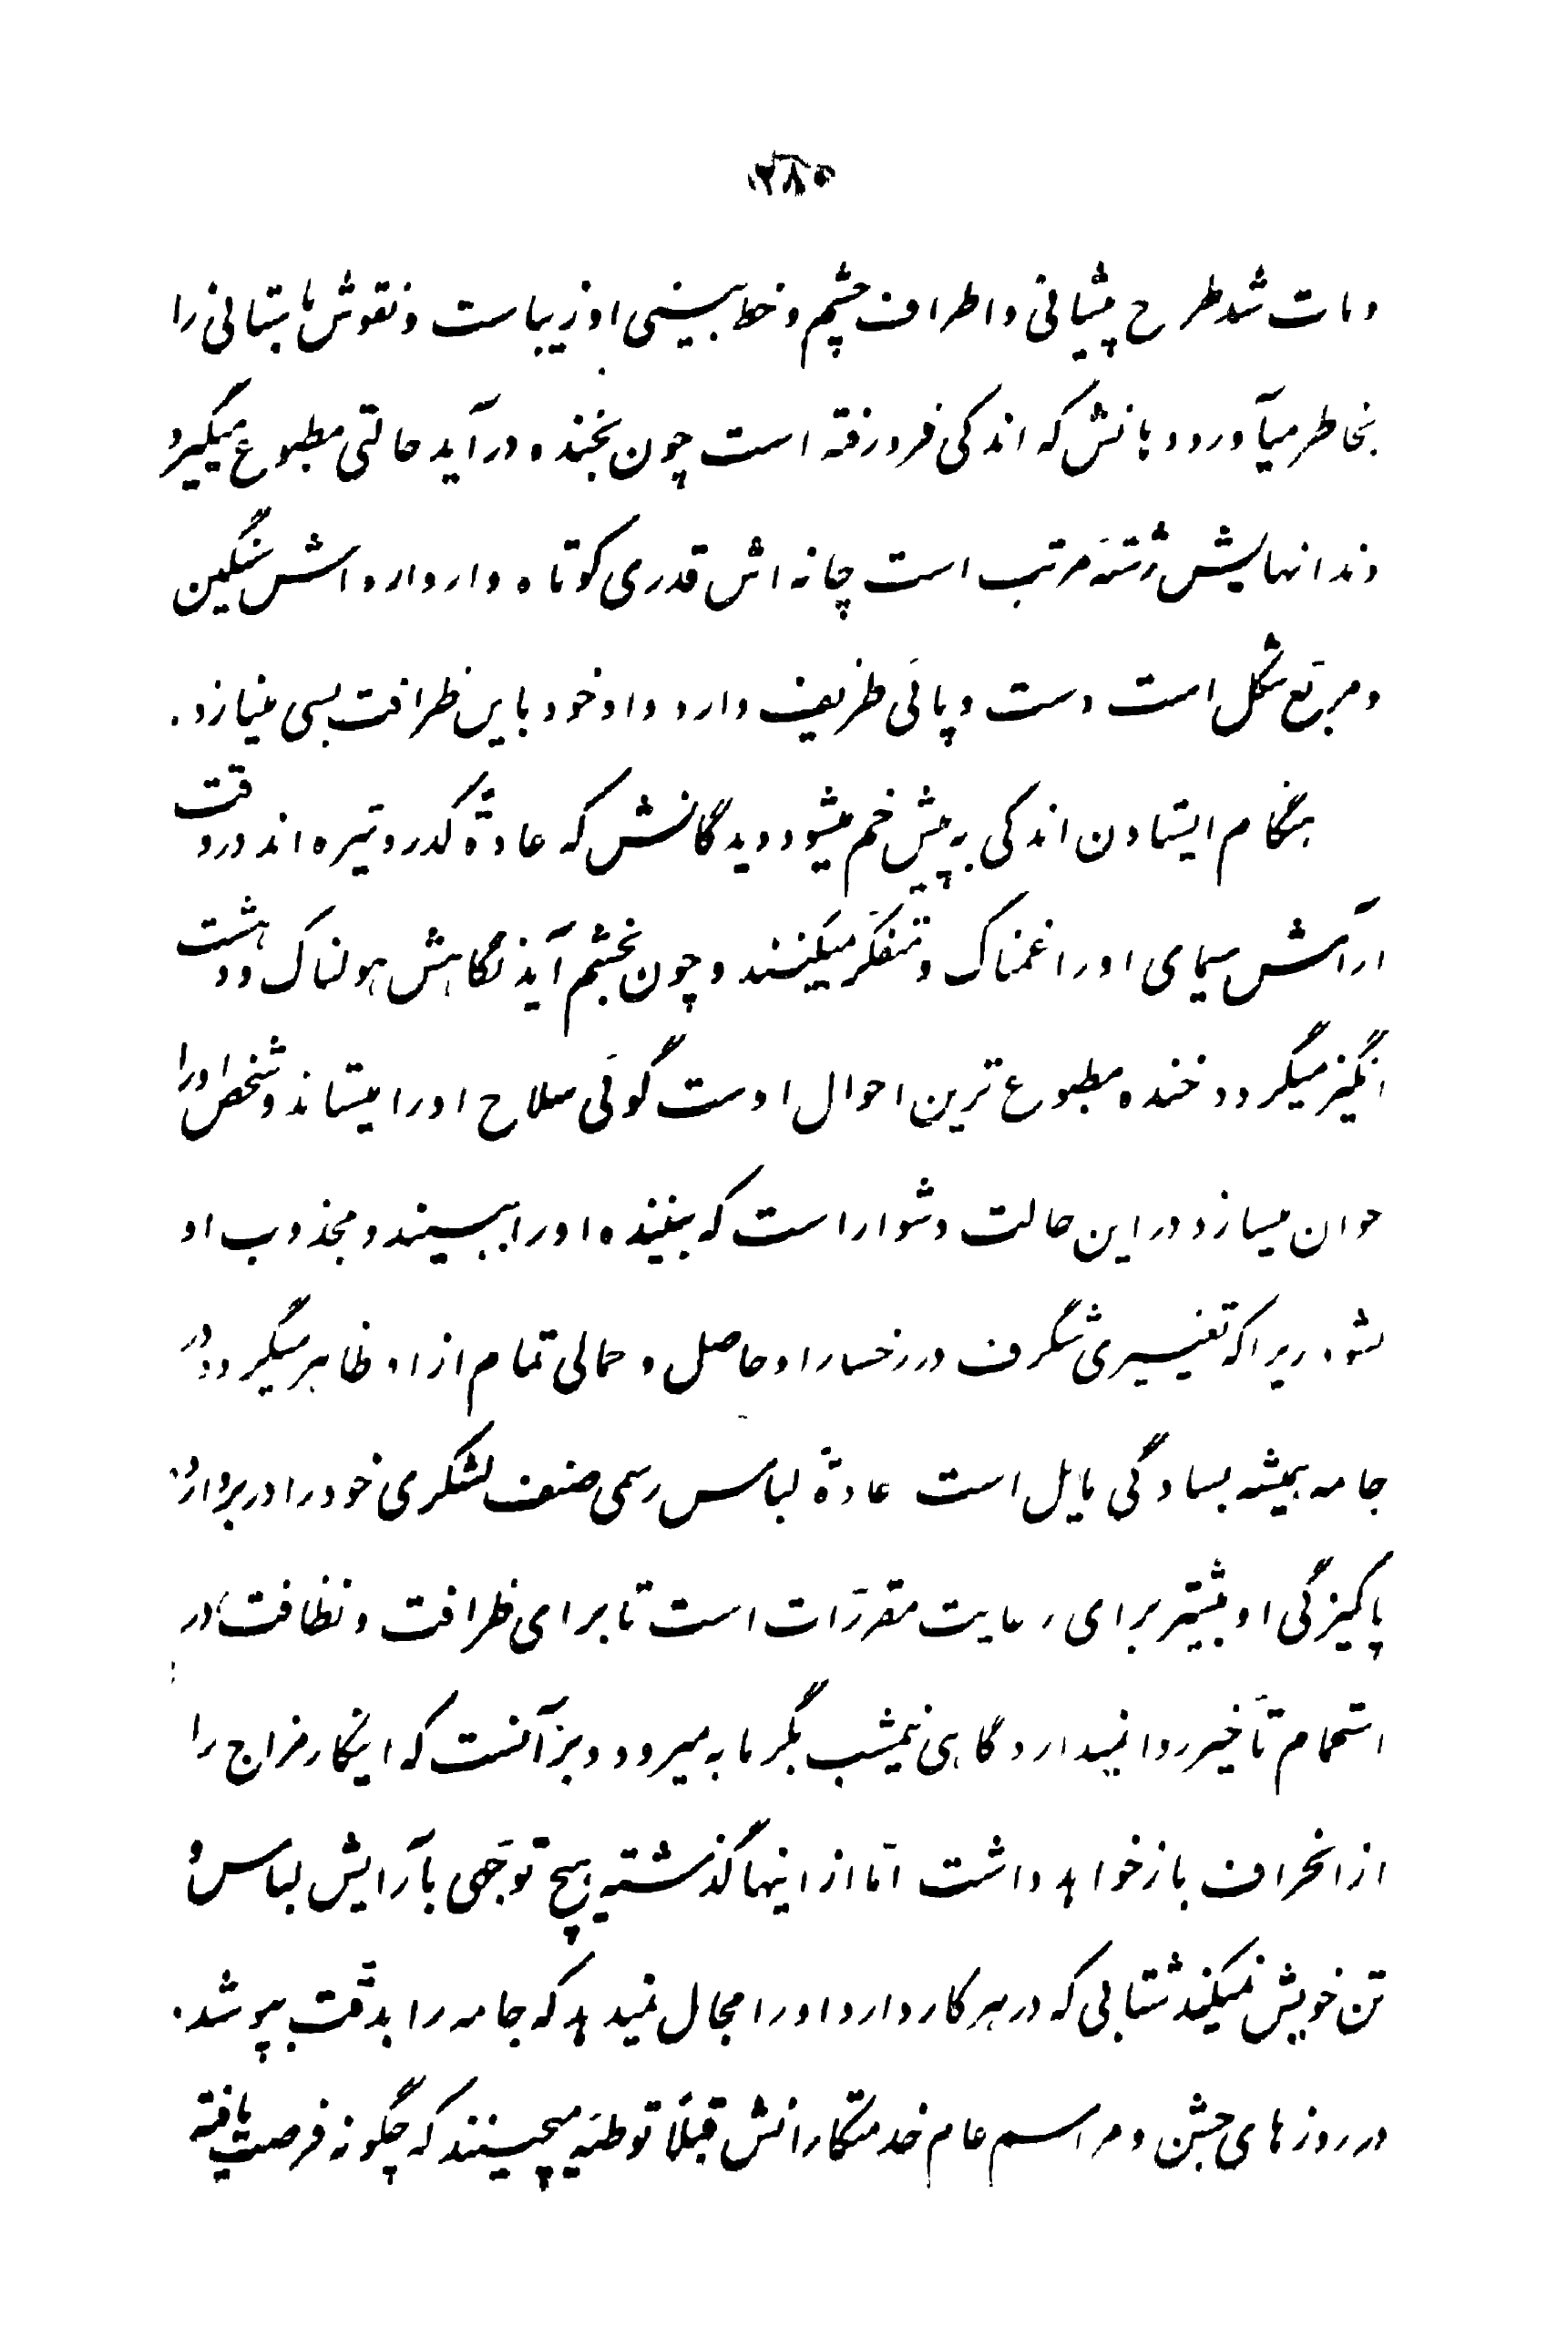 ۲۸۵
و مات شد طرح پیشانی و اطراف چشم و خط بینی او زیباست و نقوش باستانی را
بخاطر میآورد دهانش که اندکی فرو رفته است چون بخنده درآید حالتی مطبوع میگیرد
دندانهایش زشت نه مرتب است چانه اش قدری کوتاه و ارواره اش سنگین
و مربّع شکل است دست و پائی ظریف دارد و او خود باین ظرافت بسی مینازد.
هنگام ایستادن اندکی به پیش خم میشود دیدگانش که عادةً کدر و تیره اند در وقت
آرامش سیمای او را غمناک و متفکّر میکنند و چون بخشم آید نگاهش هولناک و دهشت
انگیز میگردد خنده مطبوع ترین احوال اوست گوئی سلاح او را میستاند و شخص او را
جوان میسازد در این حالت دشوار است که بیننده او را ببیند و مجذوب او
نشود زیرا که تغییری شگرف در رخسار او حاصل و جمالی تمام از او ظاهر میگردد در
جامه همیشه بسادگی مایل است عادةً لباس رسمی صنف لشکری خود را در بر دارد
پاکیزگی او بیشتر برای رعایت مقرّرات است تا برای ظرافت و نظافت در
استحمام تأخیر روا نمیدارد گاهی نیمشب بگرمابه میرود و بر آنست که اینکار مزاج را
از انحراف باز خواهد داشت امّا از اینها گذشته هیچ توجّهی بآرایش لباس و
تن خویش نمیکند شتابی که در هر کار دارد او را مجال نمیدهد که جامه را بدقّت بپوشد.
در روزهای جشن و مراسم عام خدمتکارانش قبلاً توطئه میچینند که چگونه فرصت یافته